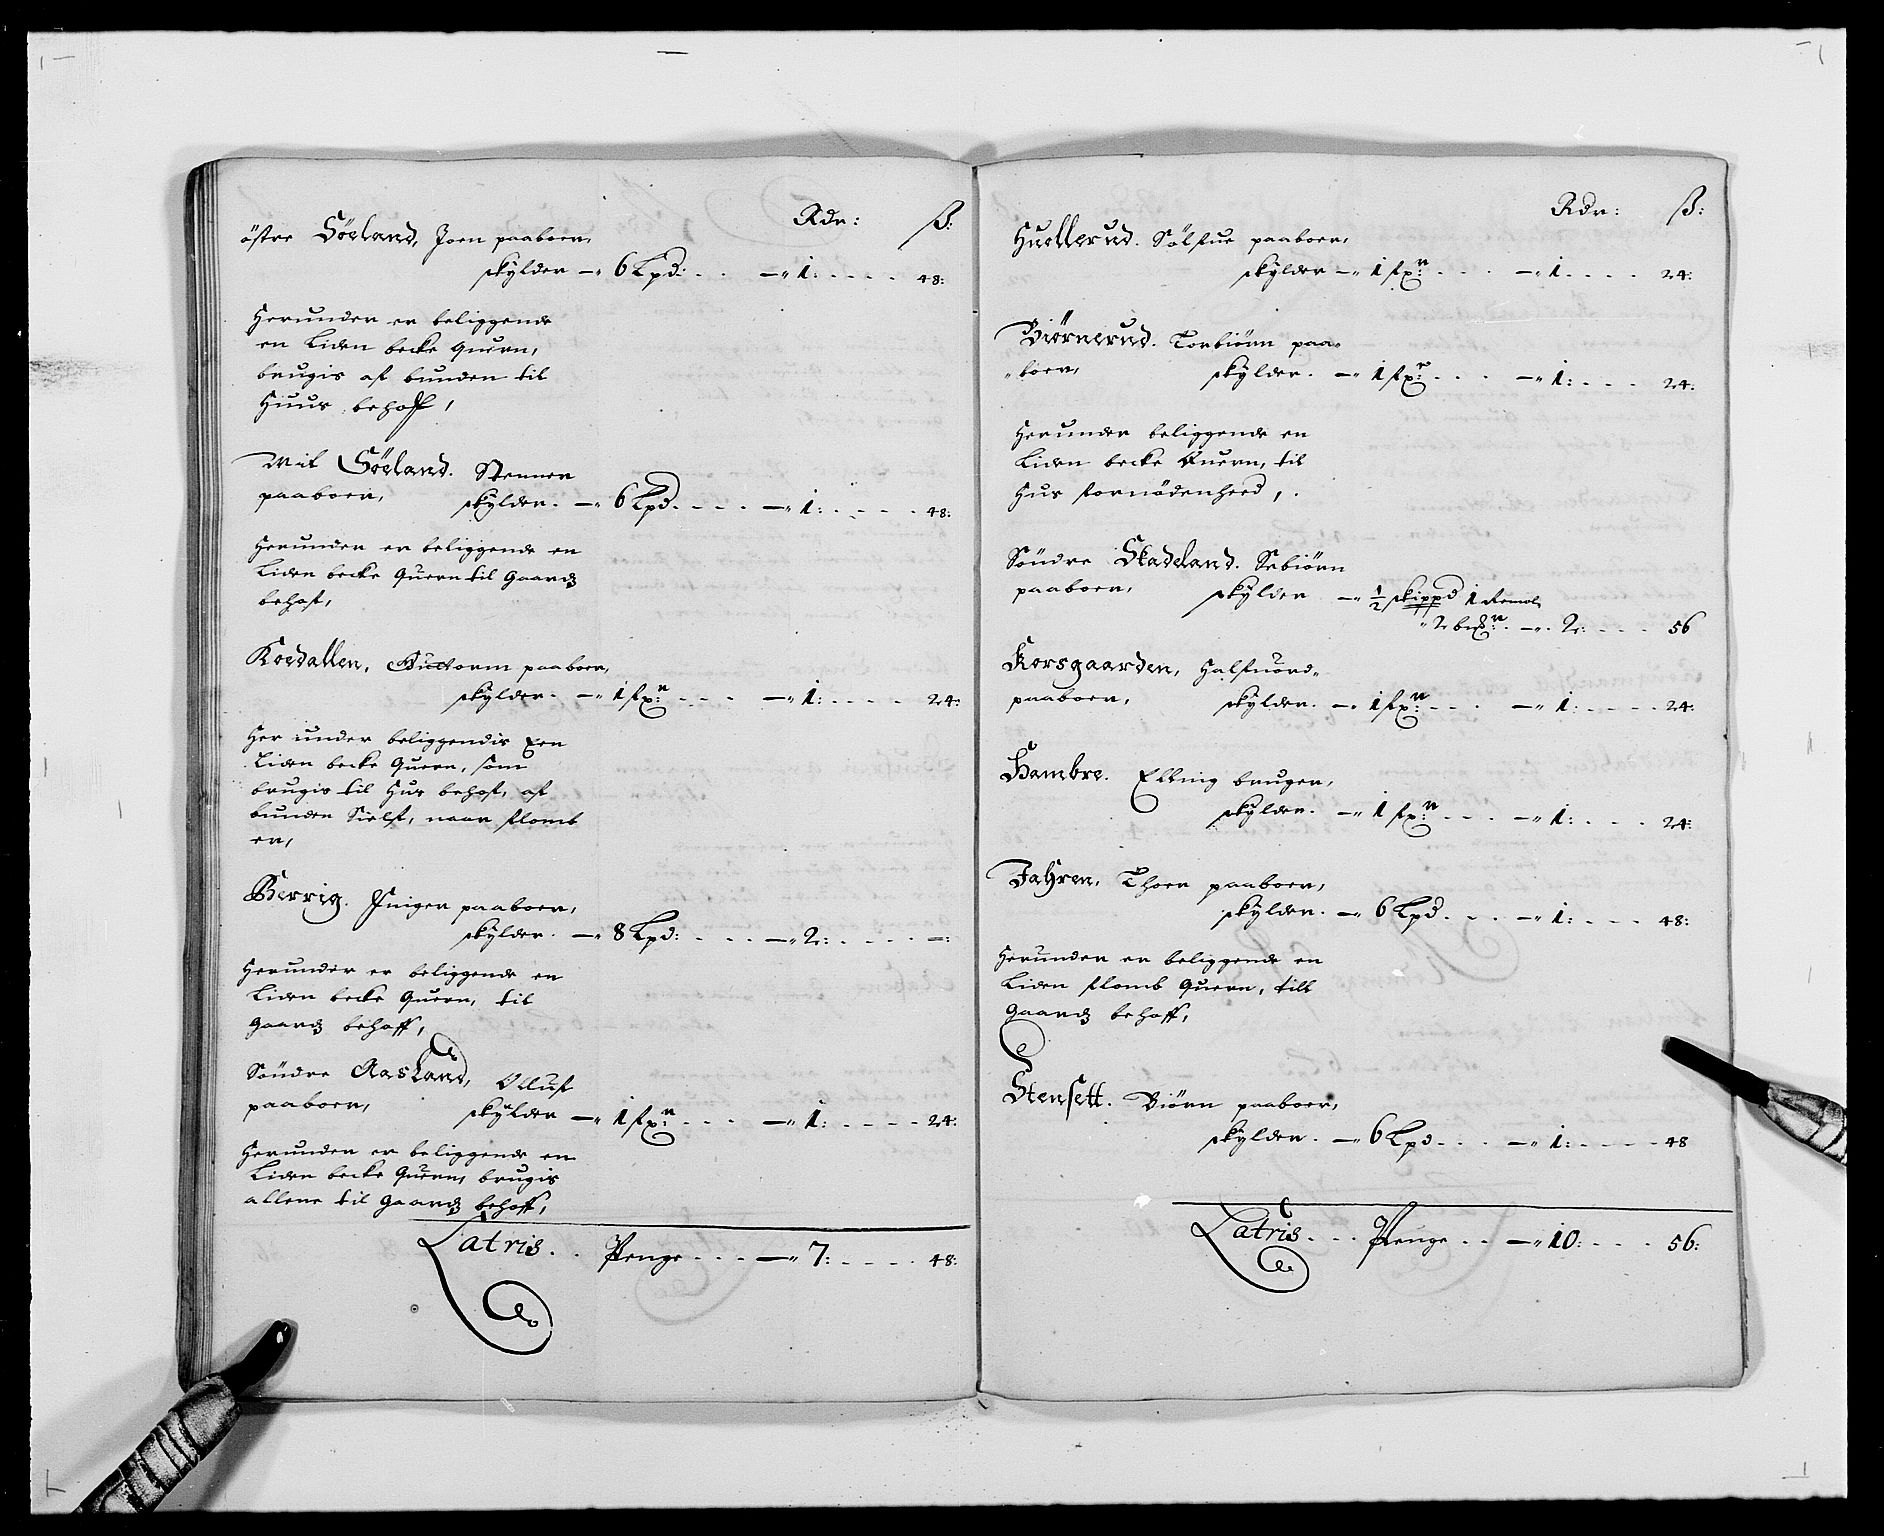 Rdr: ß:
östre Söeland, Joen paaboer,
skylder — 6 Lpd: . . . — 1: . . . . 48:
Herunder er beliggende
en Liden becke Quern,
brugis af bunden til
Huus behoff,
Mit Söeland. Stenner
paaboer, skylder. — 6 Lpd. . . . — 1: . . . . 48:
Herunder er beliggende en
Liden becke Quern til Gaardz
behof,
Koedallen, Guttorm paaboer,
skylder. — 1 fxr: . . . — 1: . . . . 24:
Her under beliggendis Een
Liden becke Quern, som
brugis til Hus behof, af
bunden Sielf, naar flomb
er,
Berrig. Inger paaboer,
skylder. — 8 Lpd: . . . — 2: . . . . —:
Herunder er beliggende en
Liden becke Quern, til
Gaardz behoff,
Söndre Aasland, Olluf
paaboer, skylder — 1 fxr: . . . — 1: . . . . 24:
Herunder er beliggende en
Liden becke Quern, brugis
allene til Gaardz behoff,
Latris . . Penge . . . — 7: . . . . 48:
Rdr: ß:
Huellerud. Sölfue paaboer,
skylder — 1 fxr: . . . — 1 . . . . 24:
Biörnerud. Torbiörn paa-
boer, skylder. — 1 fxr: . . . — 1: . . . 24:
Herunder beliggende en
Liden becke Quern, til
Hus fornödenheed,
Söndre Skadeland. Sebiörn
paaboer, skylder — ½ skippd 1
2 — 2: . . . 56
Korsgaarden, Halfuord
paaboer, skylder. — 1 fxr: . . . — 1: . . . . 24:
Hambre. Elling bruger,
skylder. — 1 fxr: . . . — 1: . . . 24:
Jahren, Thoer paaboer,
skylder. — 6 Lpd. . . . — 1: . . . . 48:
Herunder er beliggende en
Liden flomb Quern, till
Gaardz behoff,
Stensett. Biörn paaboer,
skylder. — 6 Lpd . . . — 1: . . . . 48
Latris . . . Penge . . — 10: . . . 56: